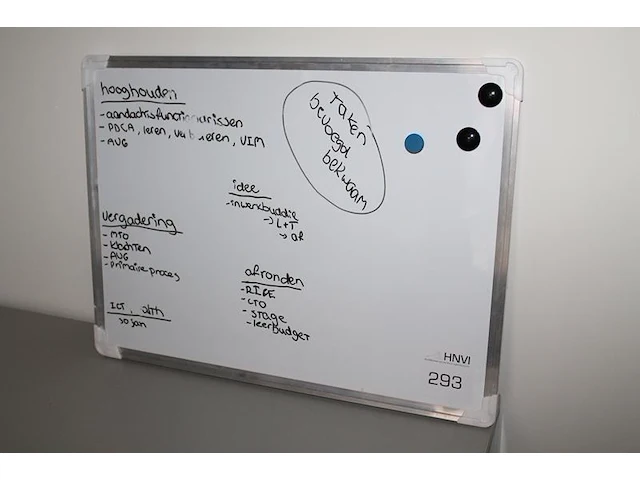 hooghouden
- aandachtsfunctionarissen
- PDCA, leren, verbeteren, VIM
- AVG
taken
bevoegd
bekwaam
idee
- inwerkbuddie
-> L+T
-> OR
vergadering
- MTO
- klachten
- AVG
- primaire proces
afronden
- RI&E
- CTO
- stage
- leerbudget
ICT,
30 jan
HNVI
293